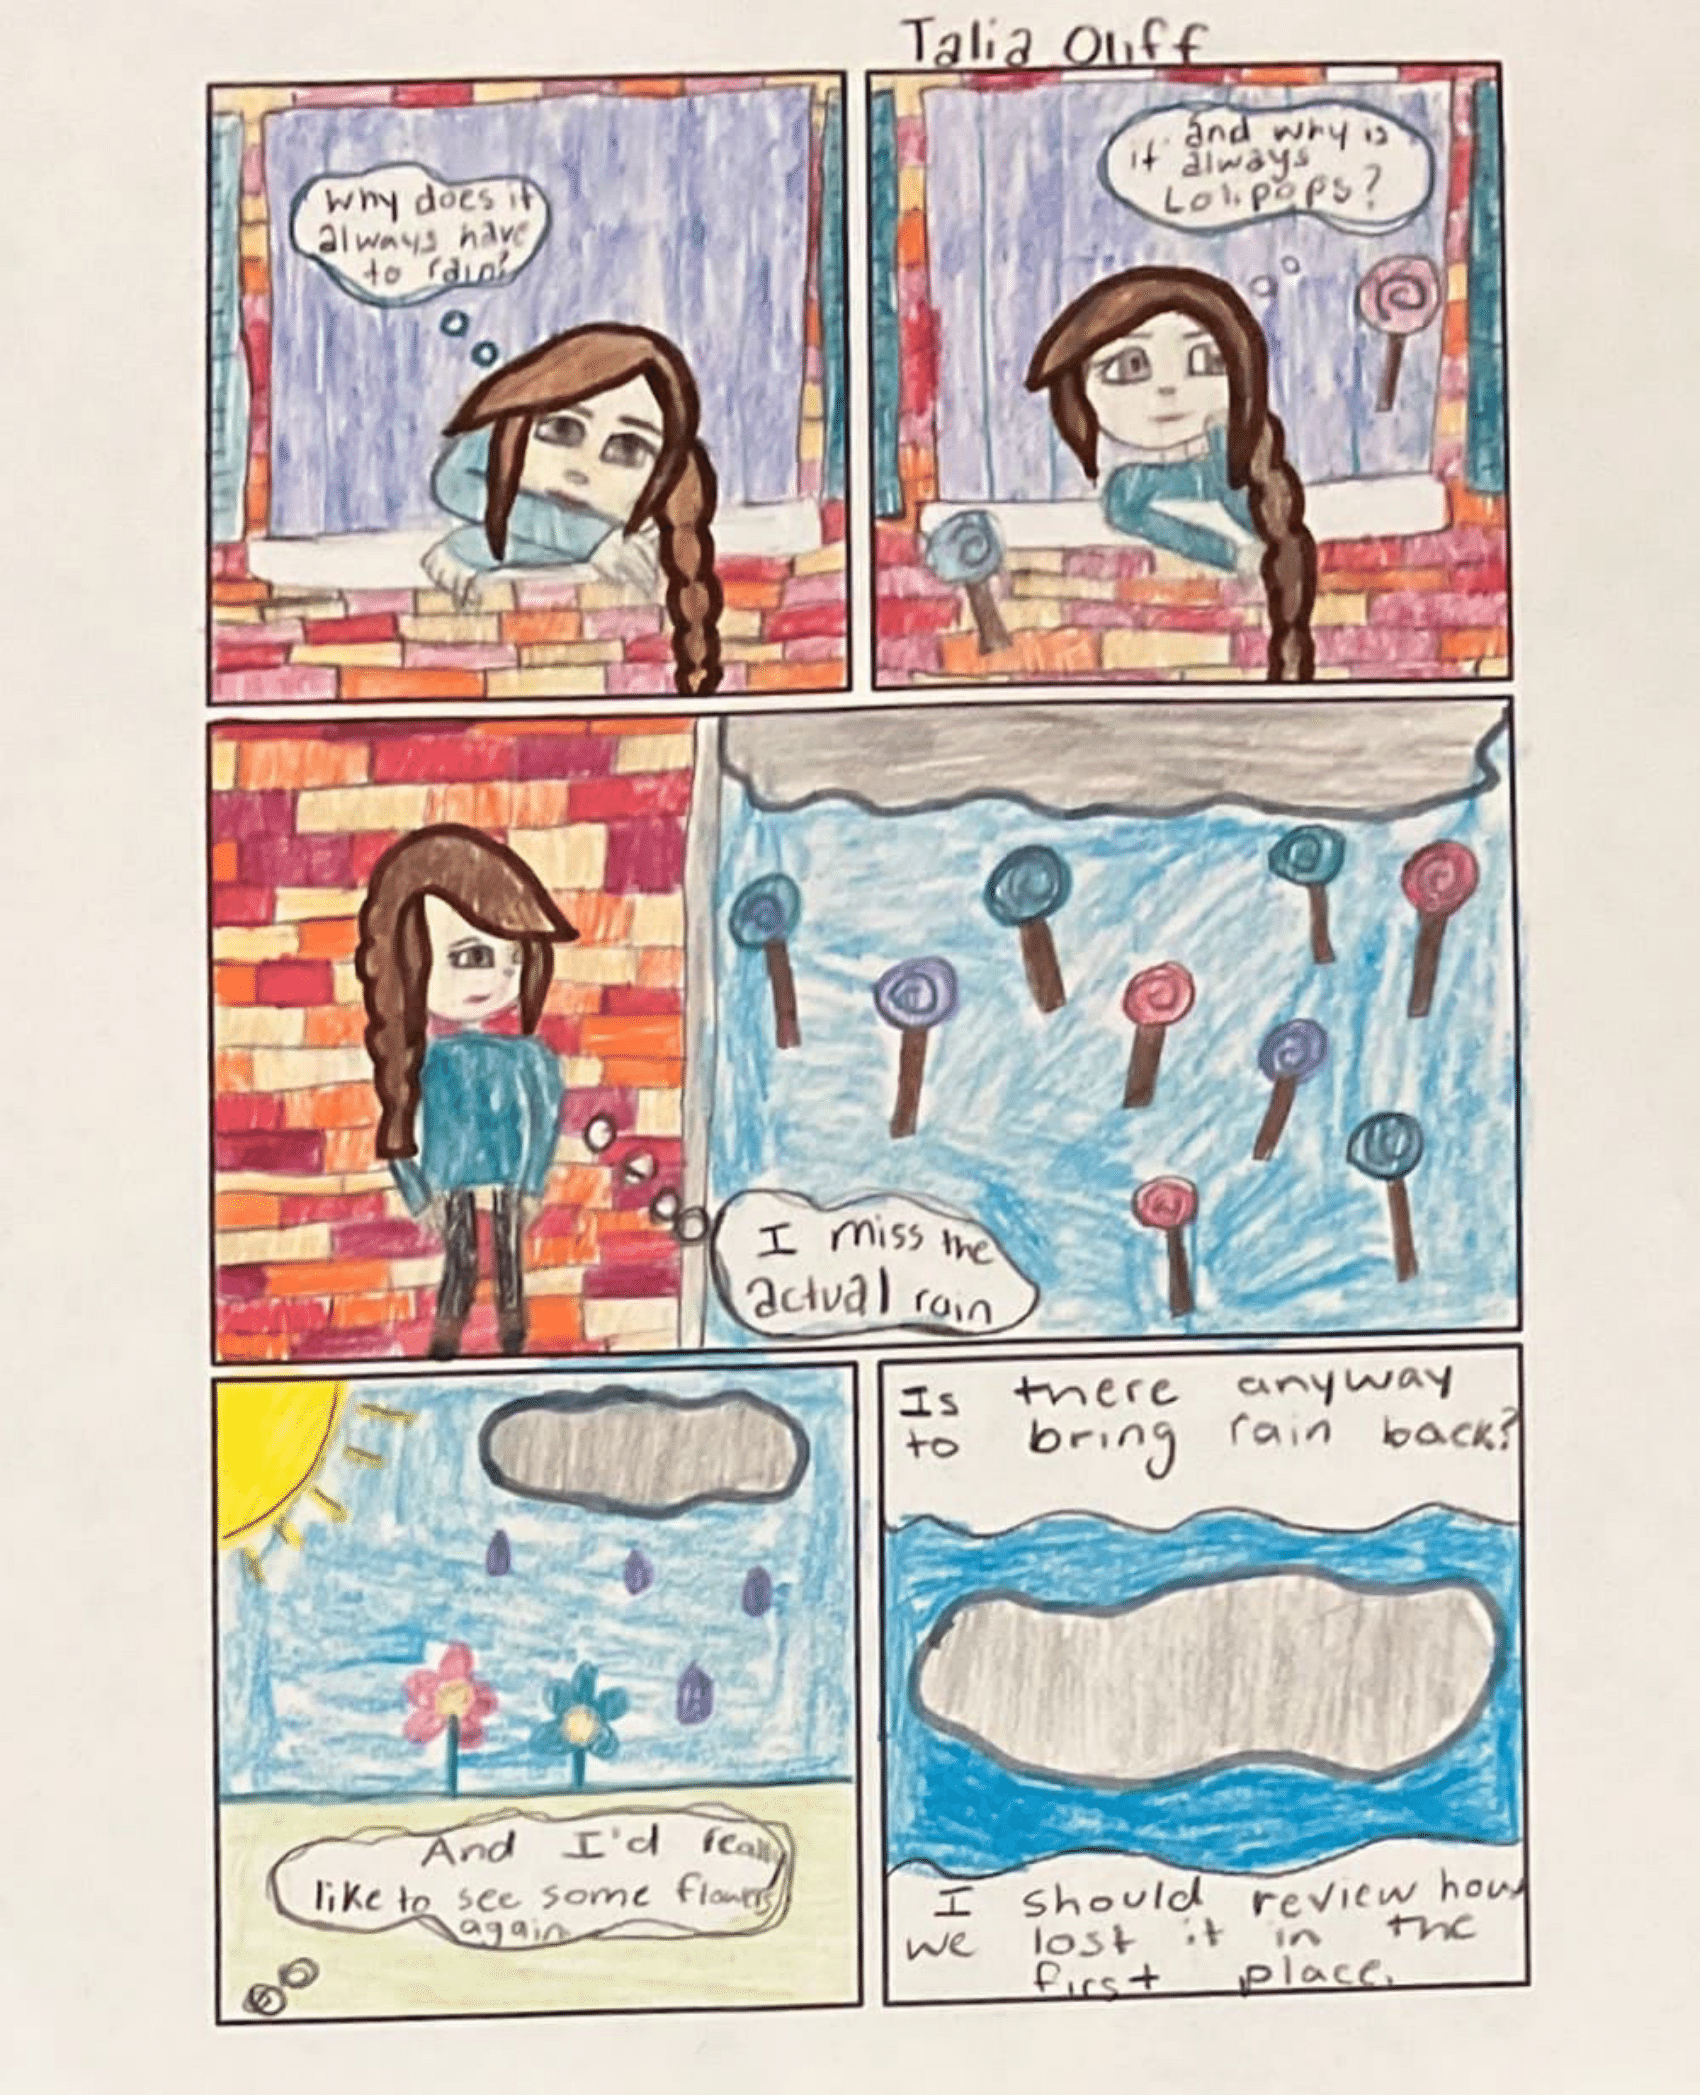 Talia Oliff
Why does it
always have
to rain?
and why is
it always
Lolipops?
I miss the
actual rain
And I'd really
like to see some flowers
again
Is there anyway
to bring rain back?
I should review how
we lost it in the
first place.